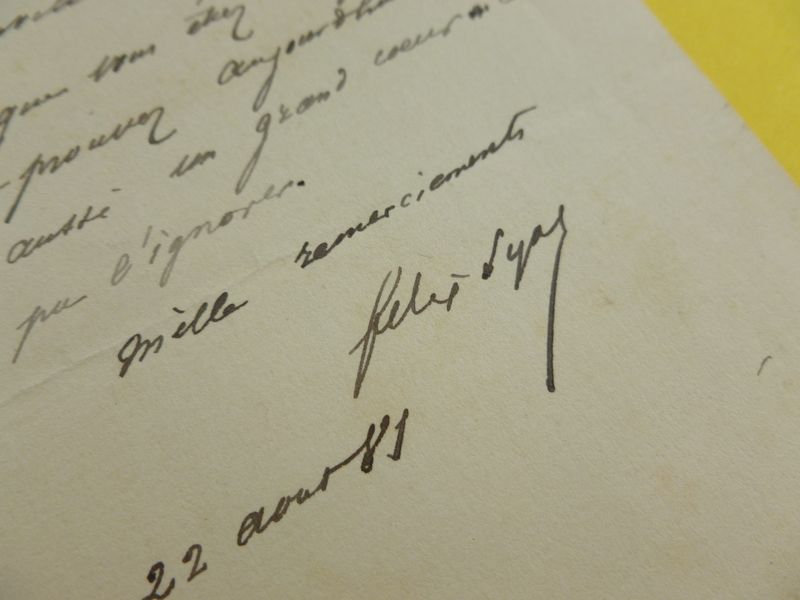 que vous étiez
prouvez aujourd'hui
aussi un grand coeur
pu l'ignorer.
Mille remerciements
felix Pyat
22 aout 81